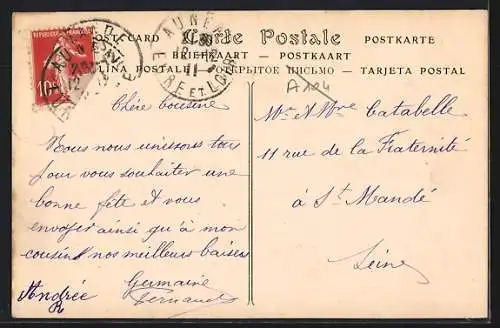 POST-CARD Carte Postale POSTKARTE
BRIEFKAART — POSTKAART
LINA POSTALE ОТКРЫТОЕ ПИСЬМО — TARJETA POSTAL
AUNEAU
EURE ET LOIR
10c
A104
Chère cousine
Nous nous unissons tous
pour vous souhaiter une
bonne fête et vous
envoyer ainsi qu'à mon
cousin nos meilleurs baisers
Germaine
Andrée
R
Mr et Mme Catabelle
11 rue de la Fraternité
à St Mandé
Seine